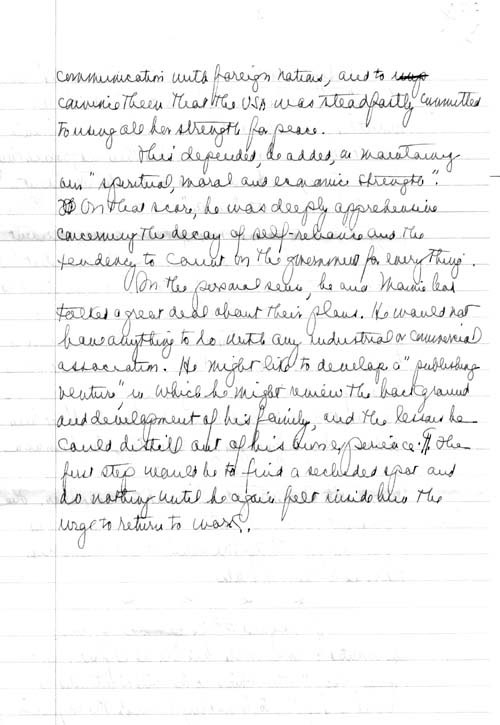 communication with foreign nations, and to
convince them that the USA was steadfastly committed
to using all her strength for peace.
This depended, he added, on maintaining
our "spiritual, moral and economic strength".
On that score, he was deeply apprehensive
concerning the decay of self-reliance and the
tendency to count on the government for everything.
On the personal sense, he and Mamie had
talked a great deal about their plans. He would not
have anything to do with any industrial or commercial
association. He might like to develop a "publishing
venture", in which he might review the background
and development of his family, and the lessons he
could distill out of his own experience. ¶ The
first step would be to find a secluded spot and
do nothing until he again felt inside him the
urge to return to work.